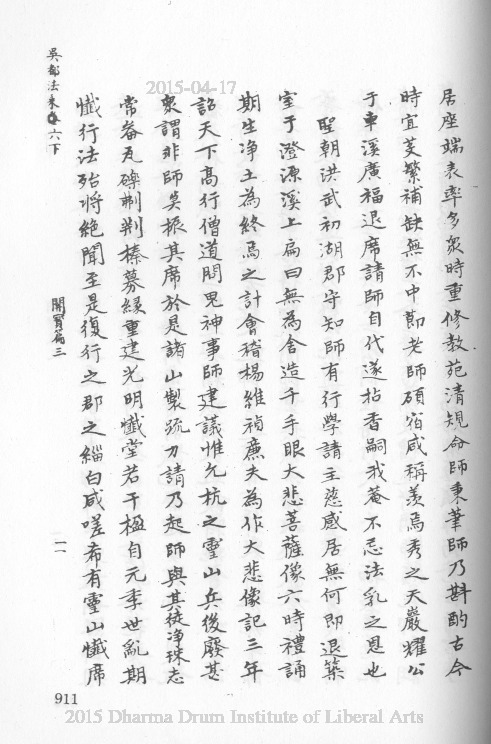 居座端表率多眾時重修教苑清規命師秉筆師乃斟酌古今
時宜芟繁補缺無不中節老師碩宿咸稱羡焉秀之天巖耀公
于車溪廣福退席請師自代遂拈香嗣我菴不忘法乳之恩也
聖朝洪武初湖郡守知師有行學請主慈感居無何即退築
室于澄源溪上扁曰無為舍造千手眼大悲菩薩像六時禮誦
期生净土為終焉之計會稽楊維禎廉夫為作大悲像記三年
詔天下高行僧道問鬼神事師建議惟允杭之靈山兵後廢甚
衆謂非師莫振其席於是諸山製疏力請乃起師與其徒净珠志
常畚瓦礫制荆榛募緣重建光明懺堂若干楹自元季世亂期
懺行法殆將絶聞至是復行之郡之緇白咸嗟希有靈山懺席
吳都法乘卷六下
開冐篇三
一一
911
2015-04-17
2015 Dharma Drum Institute of Liberal Arts